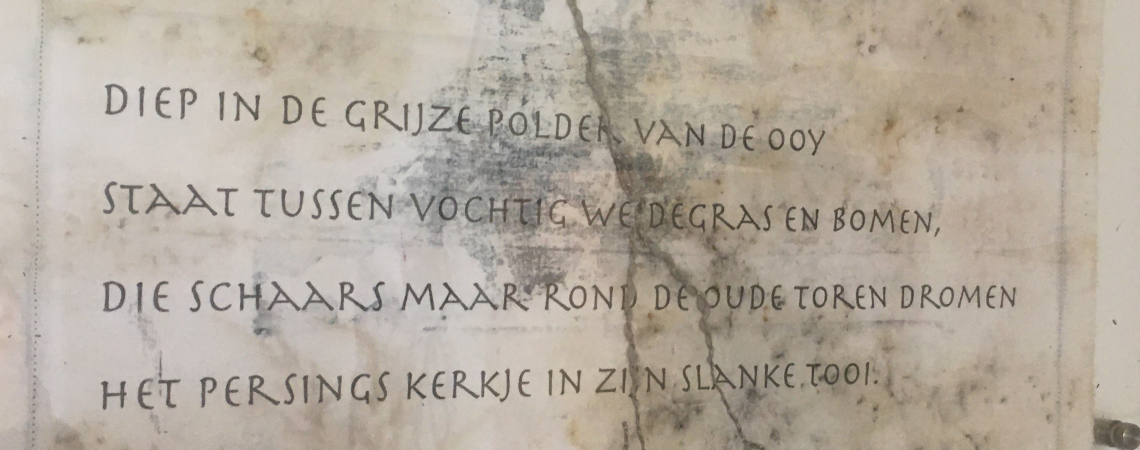 DIEP IN DE GRIJZE POLDER VAN DE OOY
STAAT TUSSEN VOCHTIG WEIDEGRAS EN BOMEN,
DIE SCHAARS MAAR ROND DE OUDE TOREN DROMEN
HET PERSINGS KERKJE IN ZIJN SLANKE TOOI.